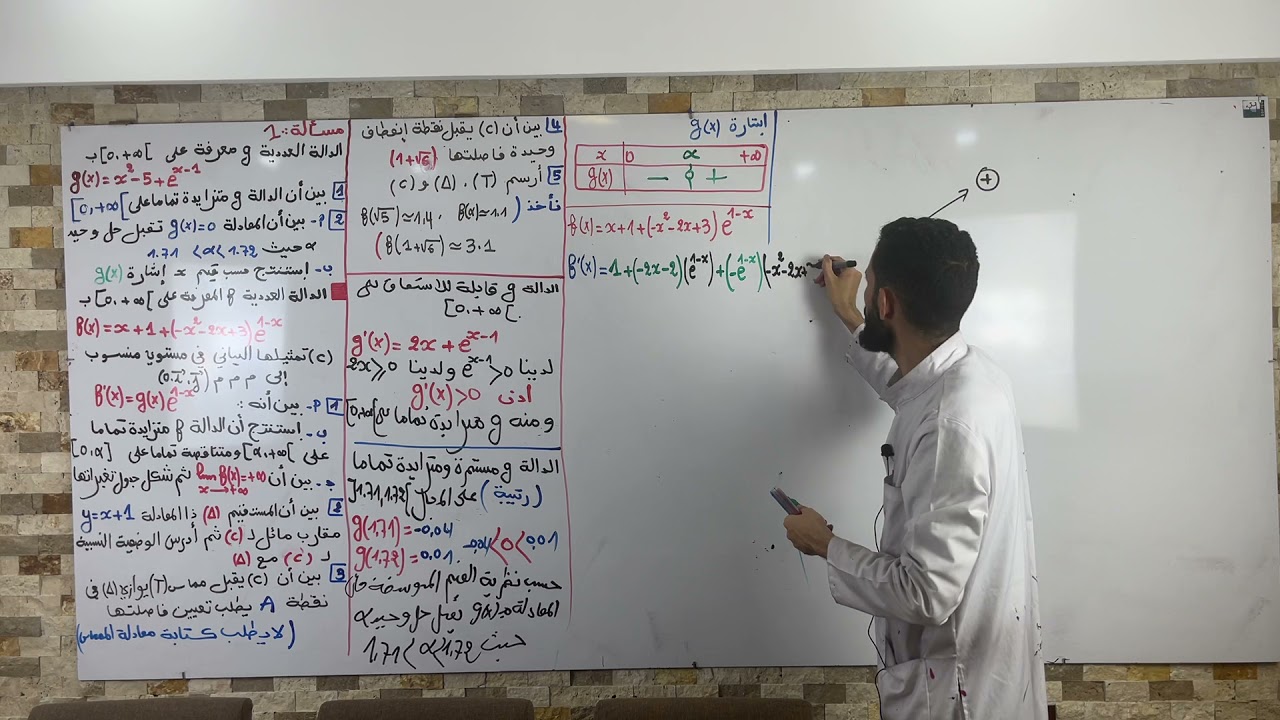 مسألة: 1
الدالة العددية g معرفة على [0,+∞[ ب
g(x) = x² - 5 + e^(x-1)
1 بين أن الدالة g متزايدة تماما على [0,+∞[
2 P- بين أن المعادلة g(x)=0 تقبل حل وحيد
α حيث 1.71 < α < 1.72
ب- إستنتج حسب قيم x إشارة g(x)
الدالة العددية f المعرفة على [0,+∞[ ب
f(x) = x + 1 + (-x² - 2x + 3) e^(1-x)
(c) تمثيلها البياني في مستوي منسوب
إلى م م م (o, i, j)
1 P- بين أنه : f'(x) = g(x) e^(1-x)
ب- إستنتج أن الدالة f متزايدة تماما
على [α,+∞[ ومتناقصة تماما على [0,α]
ج- بين أن lim f(x) = +∞ ثم شكل جدول تغيراتها
x→+∞
2 بين أن المستقيم (Δ) ذا المعادلة y = x+1
مقارب مائل لـ (c) ثم أدرس الوضعية النسبية
لـ (c) مع (Δ)
3 بين أن (c) يقبل مماس (T) يوازي (Δ) في
نقطة A يطلب تعيين فاصلتها
(لا يطلب كتابة معادلة المماس)
4 بين أن (c) يقبل نقطة إنعطاف
وحيدة فاصلتها (1+√6)
5 أرسم (T) ، (Δ) و (c)
نأخذ ( f(α) ≈ 1.1 ، f(√5) ≈ 1.4
f(1+√6) ≈ 3.1 )
الدالة g قابلة للاشتقاق على
[0,+∞[.
g'(x) = 2x + e^(x-1)
لدينا e^(x-1) > 0 ولدينا 2x ⩾ 0
أذن g'(x) > 0
ومنه g متزايدة تماما على [0,+∞[
الدالة g مستمرة ومتزايدة تماما
(رتيبة) على المجال ]1.71, 1.72[
g(1,71) = -0,04
g(1,72) = 0,01 .
-0,04 < 0 < 0,01
حسب نظرية القيم المتوسطة فإن
المعادلة g(x)=0 تقبل حل وحيد α
حيث 1,71 < α < 1,72
إشارة g(x)
x 0 α +∞
g(x) - 0 +
f(x) = x + 1 + (-x² - 2x + 3) e^(1-x)
f'(x) = 1 + (-2x - 2)(e^(1-x)) + (-e^(1-x))(-x² - 2x +
+